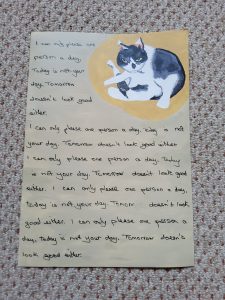 I can only please one
person a day.
Today is not your
day. Tomorrow
doesn't look good
either.
I can only please one person a day. Today is not
your day. Tomorrow doesn't look good either
I can only please one person a day. Today
is not your day. Tomorrow doesn't look good
either. I can only please one person a day.
Today is not your day. Tomorr doesn't look
good either. I can only please one person a
day. Today is not your day. Tomorrow doesn't
look good either.